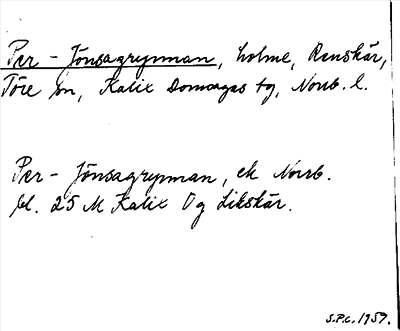 Per-Jönsagrynnan, holme, Renskär,
Töre sn, Kalix Domsagas tg, Norrb. l.
Per-Jönsagrynnan, ek Norrb.
bl. 25 M Kalix Og Likskär.
S.P.C. 1957.